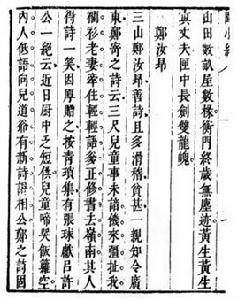 山田數畝屋數椽衡門終歲無塵迹黃生黃生
眞丈夫匣中長劍雙龍
鄭汝昂
三山鄭汝昂善詩且多滑稽貧甚一親知令廣
東鄭寄之詩云三尺兒童事未諳饑來強扯我
襴衫老妻牽住輕輕語爹正修書去嶺南其人
得詩一笑因厚贈之按青瑣集有張球獻呂許
公一絕云近日厨中乏短供兒童啼哭飯籮空
內人低語向兒道爺有新詩謁相公鄭之詩因